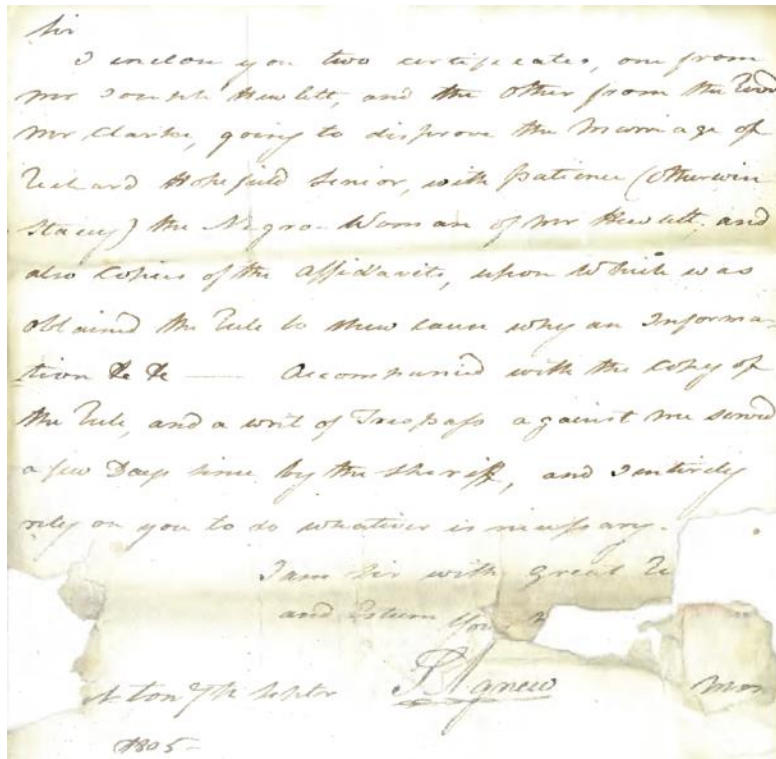 Sir
I enclose you two certificates, one from
Mr Joseph Hewlett, and the other from the Revd
Mr Clarke, going to disprove the Marriage of
Richard Hopefield Senior, with Patience (otherwise
Stacey) the Negro Woman of Mr Hewlett, and
also Copies of the Affidavits, upon which was
obtained the Rule to shew cause why an Informa-
tion &c &c — Accompanied with the Copy of
the Rule, and a writ of Trespass against me served
a few Days since by the Sheriff, and I entirely
rely on you to do whatever is necessary.
I am Sir with great
and Esteem
7th Septr S Agnew
1805-